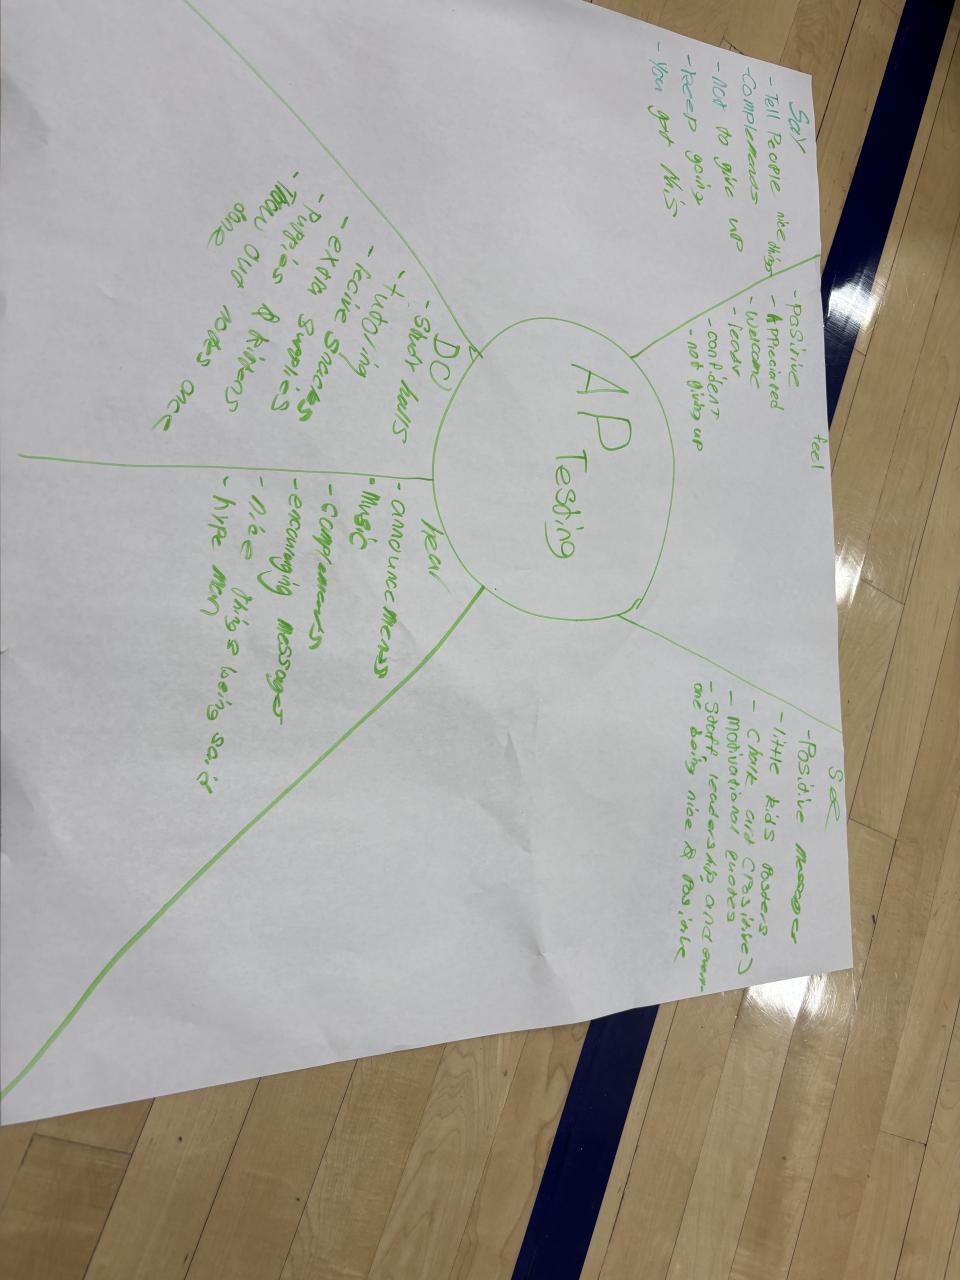 AP
Testing
Say
- Tell People nice things
- Complemends
- not to give up
- keep going
- You got this
feel
- Positive
- Appreciated
- Welcome
- leadr
- confident
- not giving up
See
- Positive messages
- little kids Posters
- Chalk art (Positive)
- motivational quotes
- Staff leaderships and every-
one being nice & Positive
hear
- announcements
- Music
- Complements
- encouraging messages
- nice things being said
- hype man
DO
- Study halls
- tutoring
- recive snacks
- extra supplies
- Puppies & kittens
- out nodes once
done